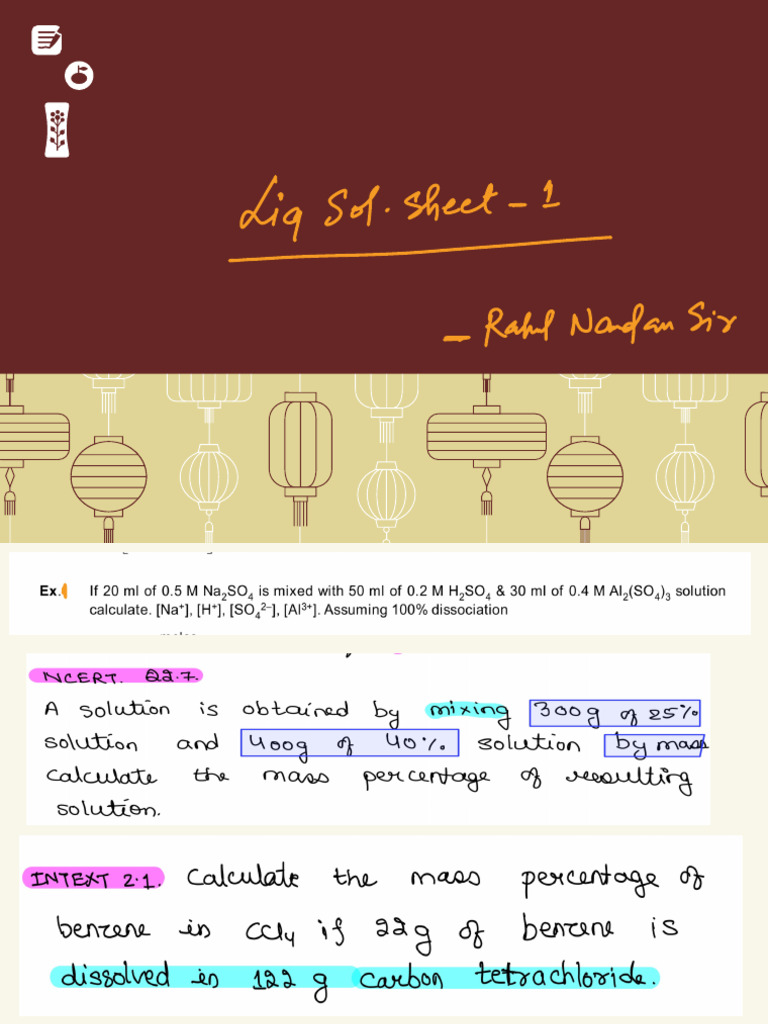 Liq Sol. Sheet - 1
- Rahul Nandan Sir
Ex. If 20 ml of 0.5 M Na₂SO₄ is mixed with 50 ml of 0.2 M H₂SO₄ & 30 ml of 0.4 M Al₂(SO₄)₃ solution
calculate. [Na⁺], [H⁺], [SO₄²⁻], [Al³⁺]. Assuming 100% dissociation
NCERT. Q2.7.
A solution is obtained by mixing 300g of 25%
solution and 400g of 40% solution by mass
calculate the mass percentage of resulting
solution.
INTEXT 2.1. Calculate the mass percentage of
benzene in CCl₄ if 22g of benzene is
dissolved in 122 g carbon tetrachloride.